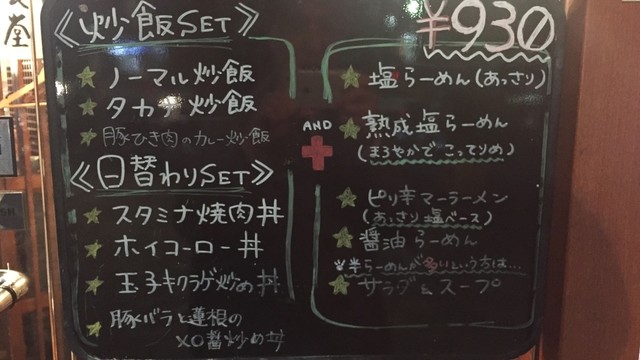 《炒飯SET》
ノーマル炒飯
タカナ炒飯
豚ひき肉のカレー炒飯
《日替わりSET》
スタミナ焼肉丼
ホイコーロー丼
玉子キクラゲ炒め丼
豚バラと蓮根の
XO醤炒め丼
AND
¥930
塩らーめん(あっさり)
熟成塩らーめん
(まろやかでこってりめ)
ピリ辛マーラーメン
(あっさり塩ベース)
醤油らーめん
半らーめんが多いという方は…
サラダとスープ